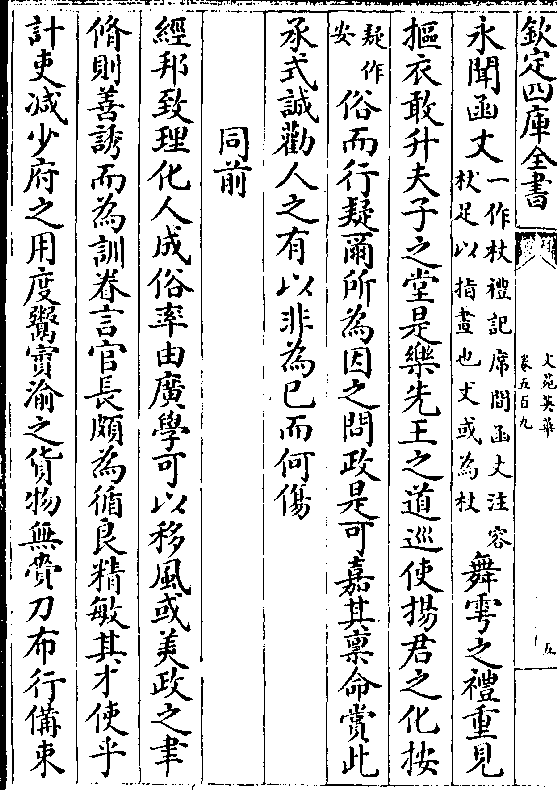 欽定四庫全書
文苑英華
卷五百九
五
永聞函丈一作杖禮記席間函丈注容杖足以指畫也丈或為杖舞雩之禮重見
摳衣敢升夫子之堂是樂先王之道巡使揚君之化按
疑作安俗而行疑爾所為因之問政是可嘉其稟命賞此
承式誠勸人之有以非為已而何傷
同前
經邦致理化人成俗率由廣學可以移風或美政之聿
脩則善誘而為訓眷言官長頗為循良精敏其才使乎
計吏减少府之用度鬻賨渝之貨物無賫刀布行僃束